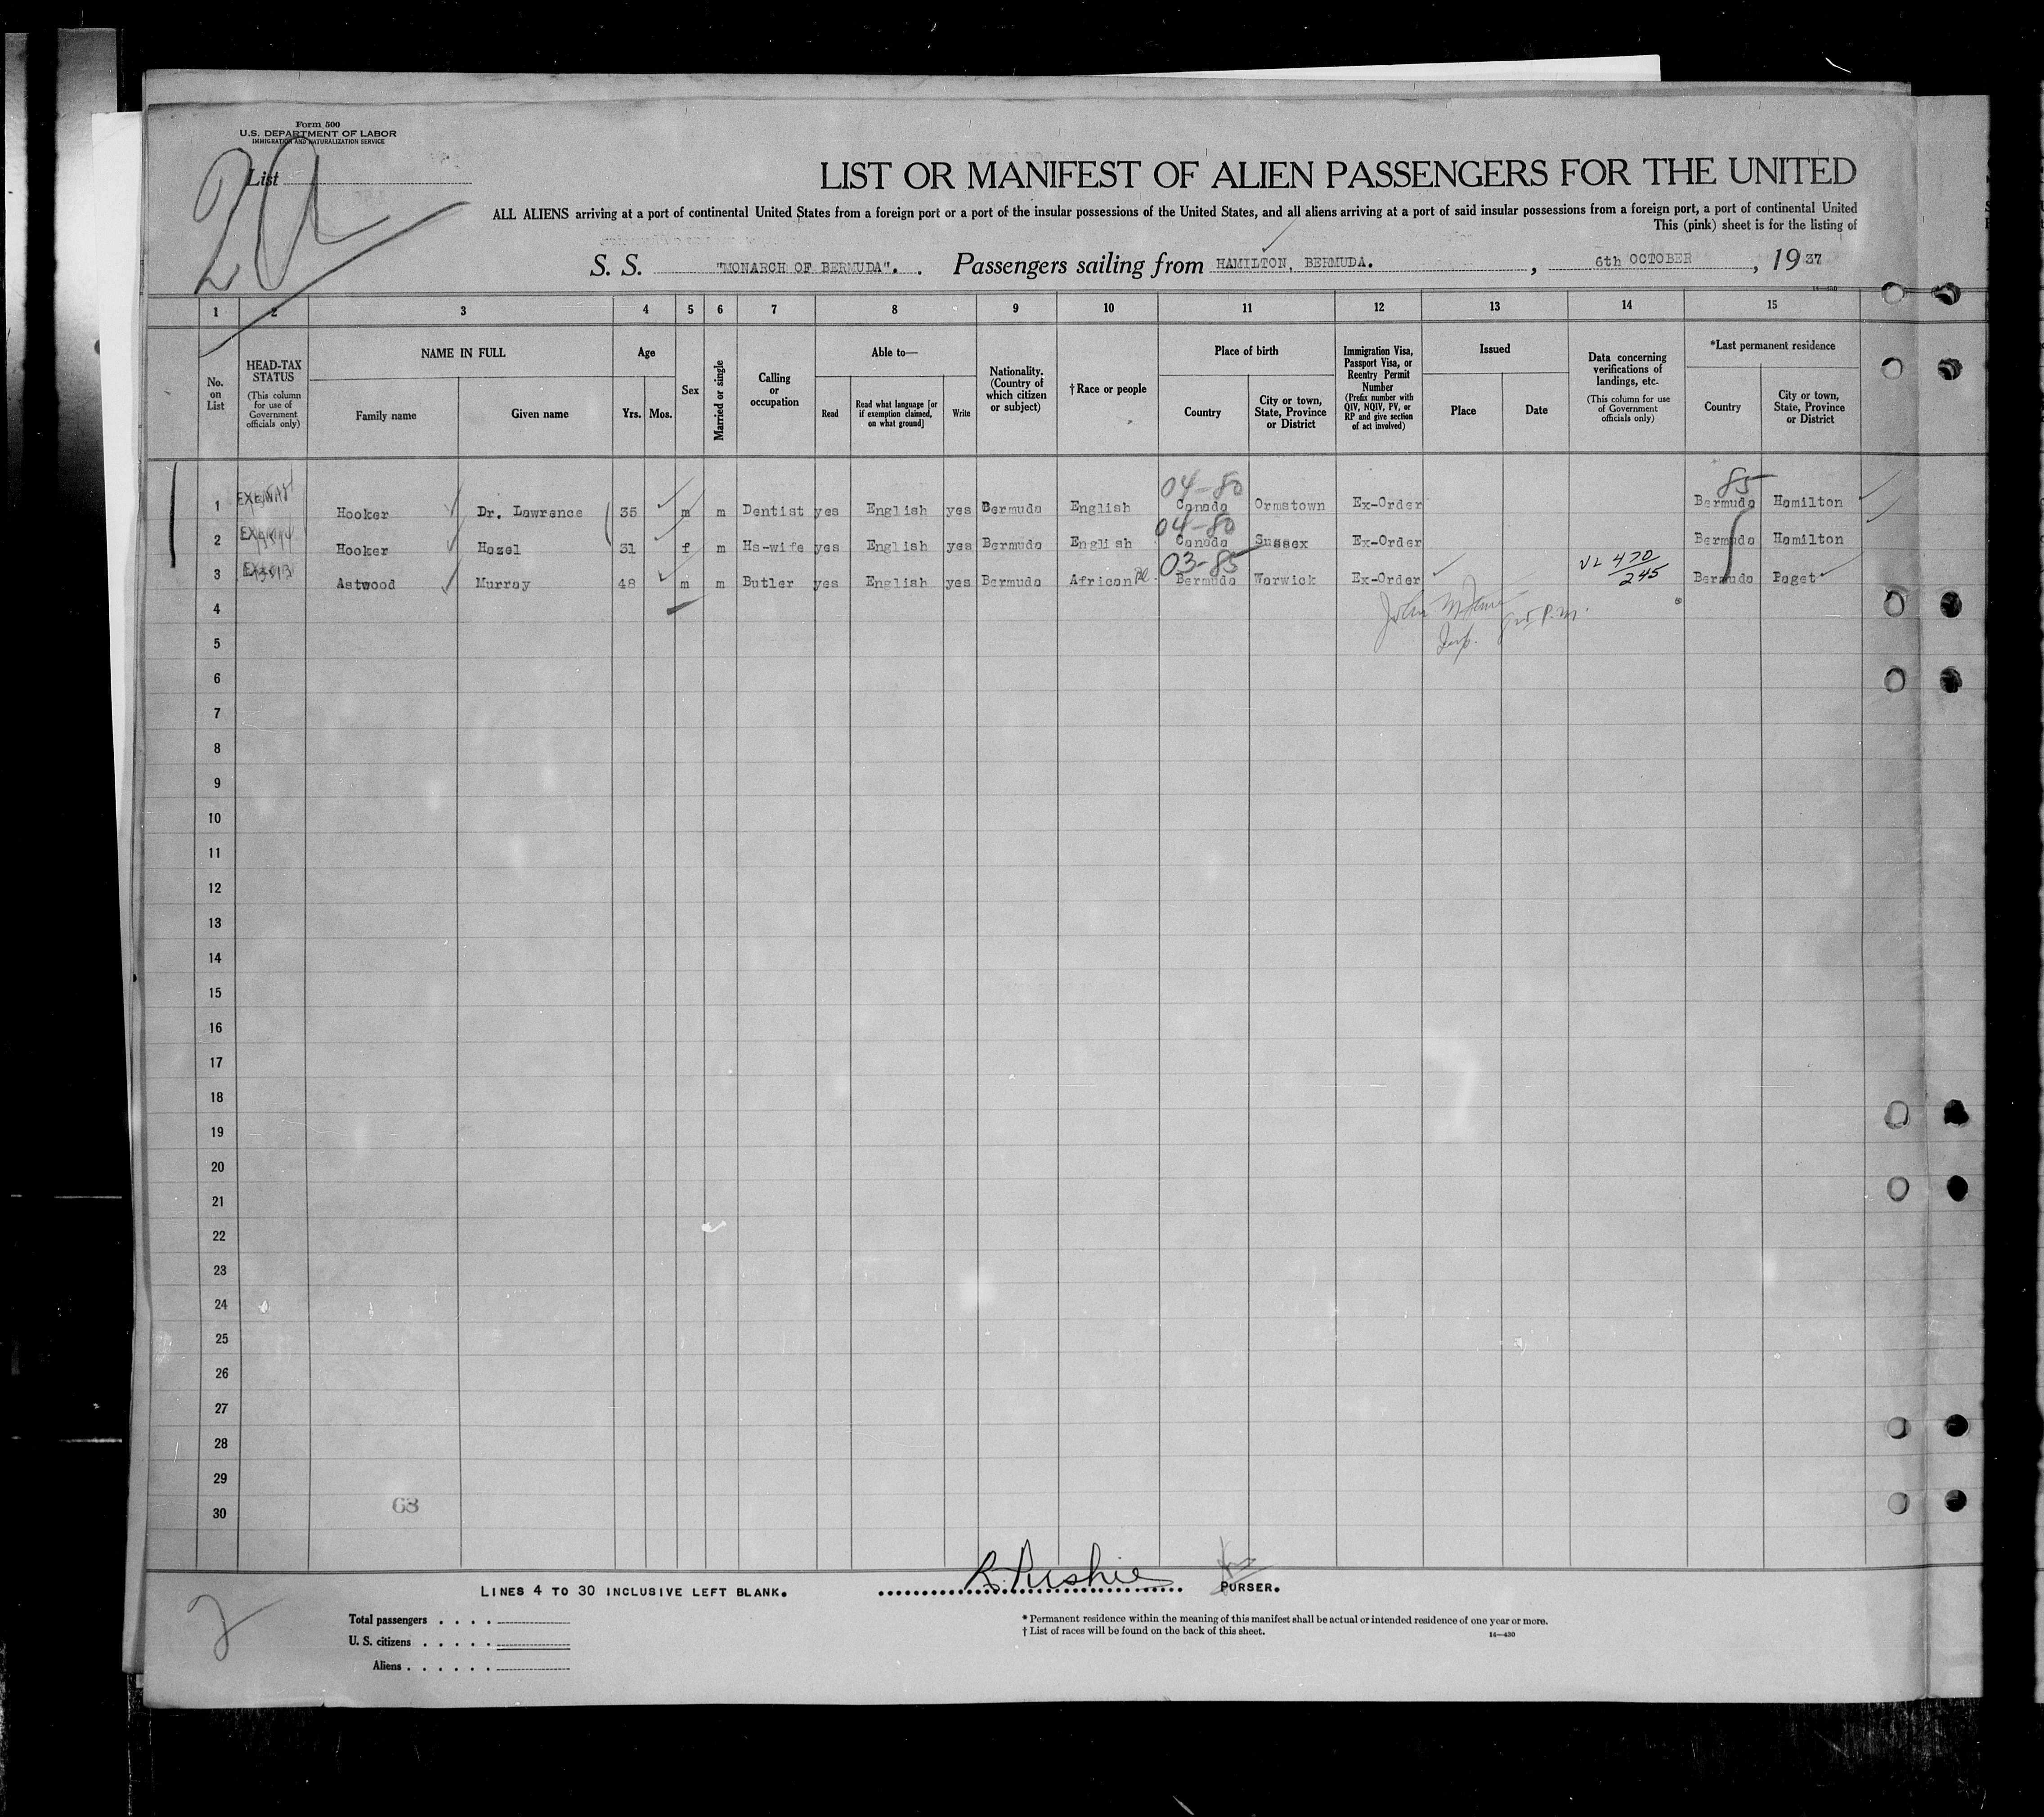 Form 500
U.S. DEPARTMENT OF LABOR
IMMIGRATION AND NATURALIZATION SERVICE
List
LIST OR MANIFEST OF ALIEN PASSENGERS FOR THE UNITED
ALL ALIENS arriving at a port of continental United States from a foreign port or a port of the insular possessions of the United States, and all aliens arriving at a port of said insular possessions from a foreign port, a port of continental United
This (pink) sheet is for the listing of
S. S. "MONARCH OF BERMUDA". Passengers sailing from HAMILTON, BERMUDA. , 6th OCTOBER , 19 37
14—430
1 2 3 4 5 6 7 8 9 10 11 12 13 14 15
No. on List
HEAD-TAX STATUS (This column for use of Government officials only)
NAME IN FULL
Family name
Given name
Age
Yrs.
Mos.
Sex
Married or single
Calling or occupation
Able to—
Read
Read what language [or if exemption claimed, on what ground]
Write
Nationality. (Country of which citizen or subject)
†Race or people
Place of birth
Country
City or town, State, Province or District
Immigration Visa, Passport Visa, or Reentry Permit Number (Prefix number with QIV, NQIV, PV, or RP and give section of act involved)
Issued
Place
Date
Data concerning verifications of landings, etc. (This column for use of Government officials only)
*Last permanent residence
Country
City or town, State, Province or District
04-80 85
1 Hooker Dr. Lawrence 35 m m Dentist yes English yes Bermuda English Canada Ormstown Ex-Order Bermuda Hamilton
04-80
2 Hooker Hazel 31 f m Hs-wife yes English yes Bermuda English Canada Sussex Ex-Order Bermuda Hamilton
03-85
3 Astwood Murray 48 m m Butler yes English yes Bermuda African Bermuda Warwick Ex-Order VL 470/245 Bermuda Paget
4
5
6
7
8
9
10
11
12
13
14
15
16
17
18
19
20
21
22
23
24
25
26
27
28
29
30
63
LINES 4 TO 30 INCLUSIVE LEFT BLANK. R. Pushie PURSER.
2
Total passengers
U. S. citizens
Aliens
* Permanent residence within the meaning of this manifest shall be actual or intended residence of one year or more.
† List of races will be found on the back of this sheet.
14—430